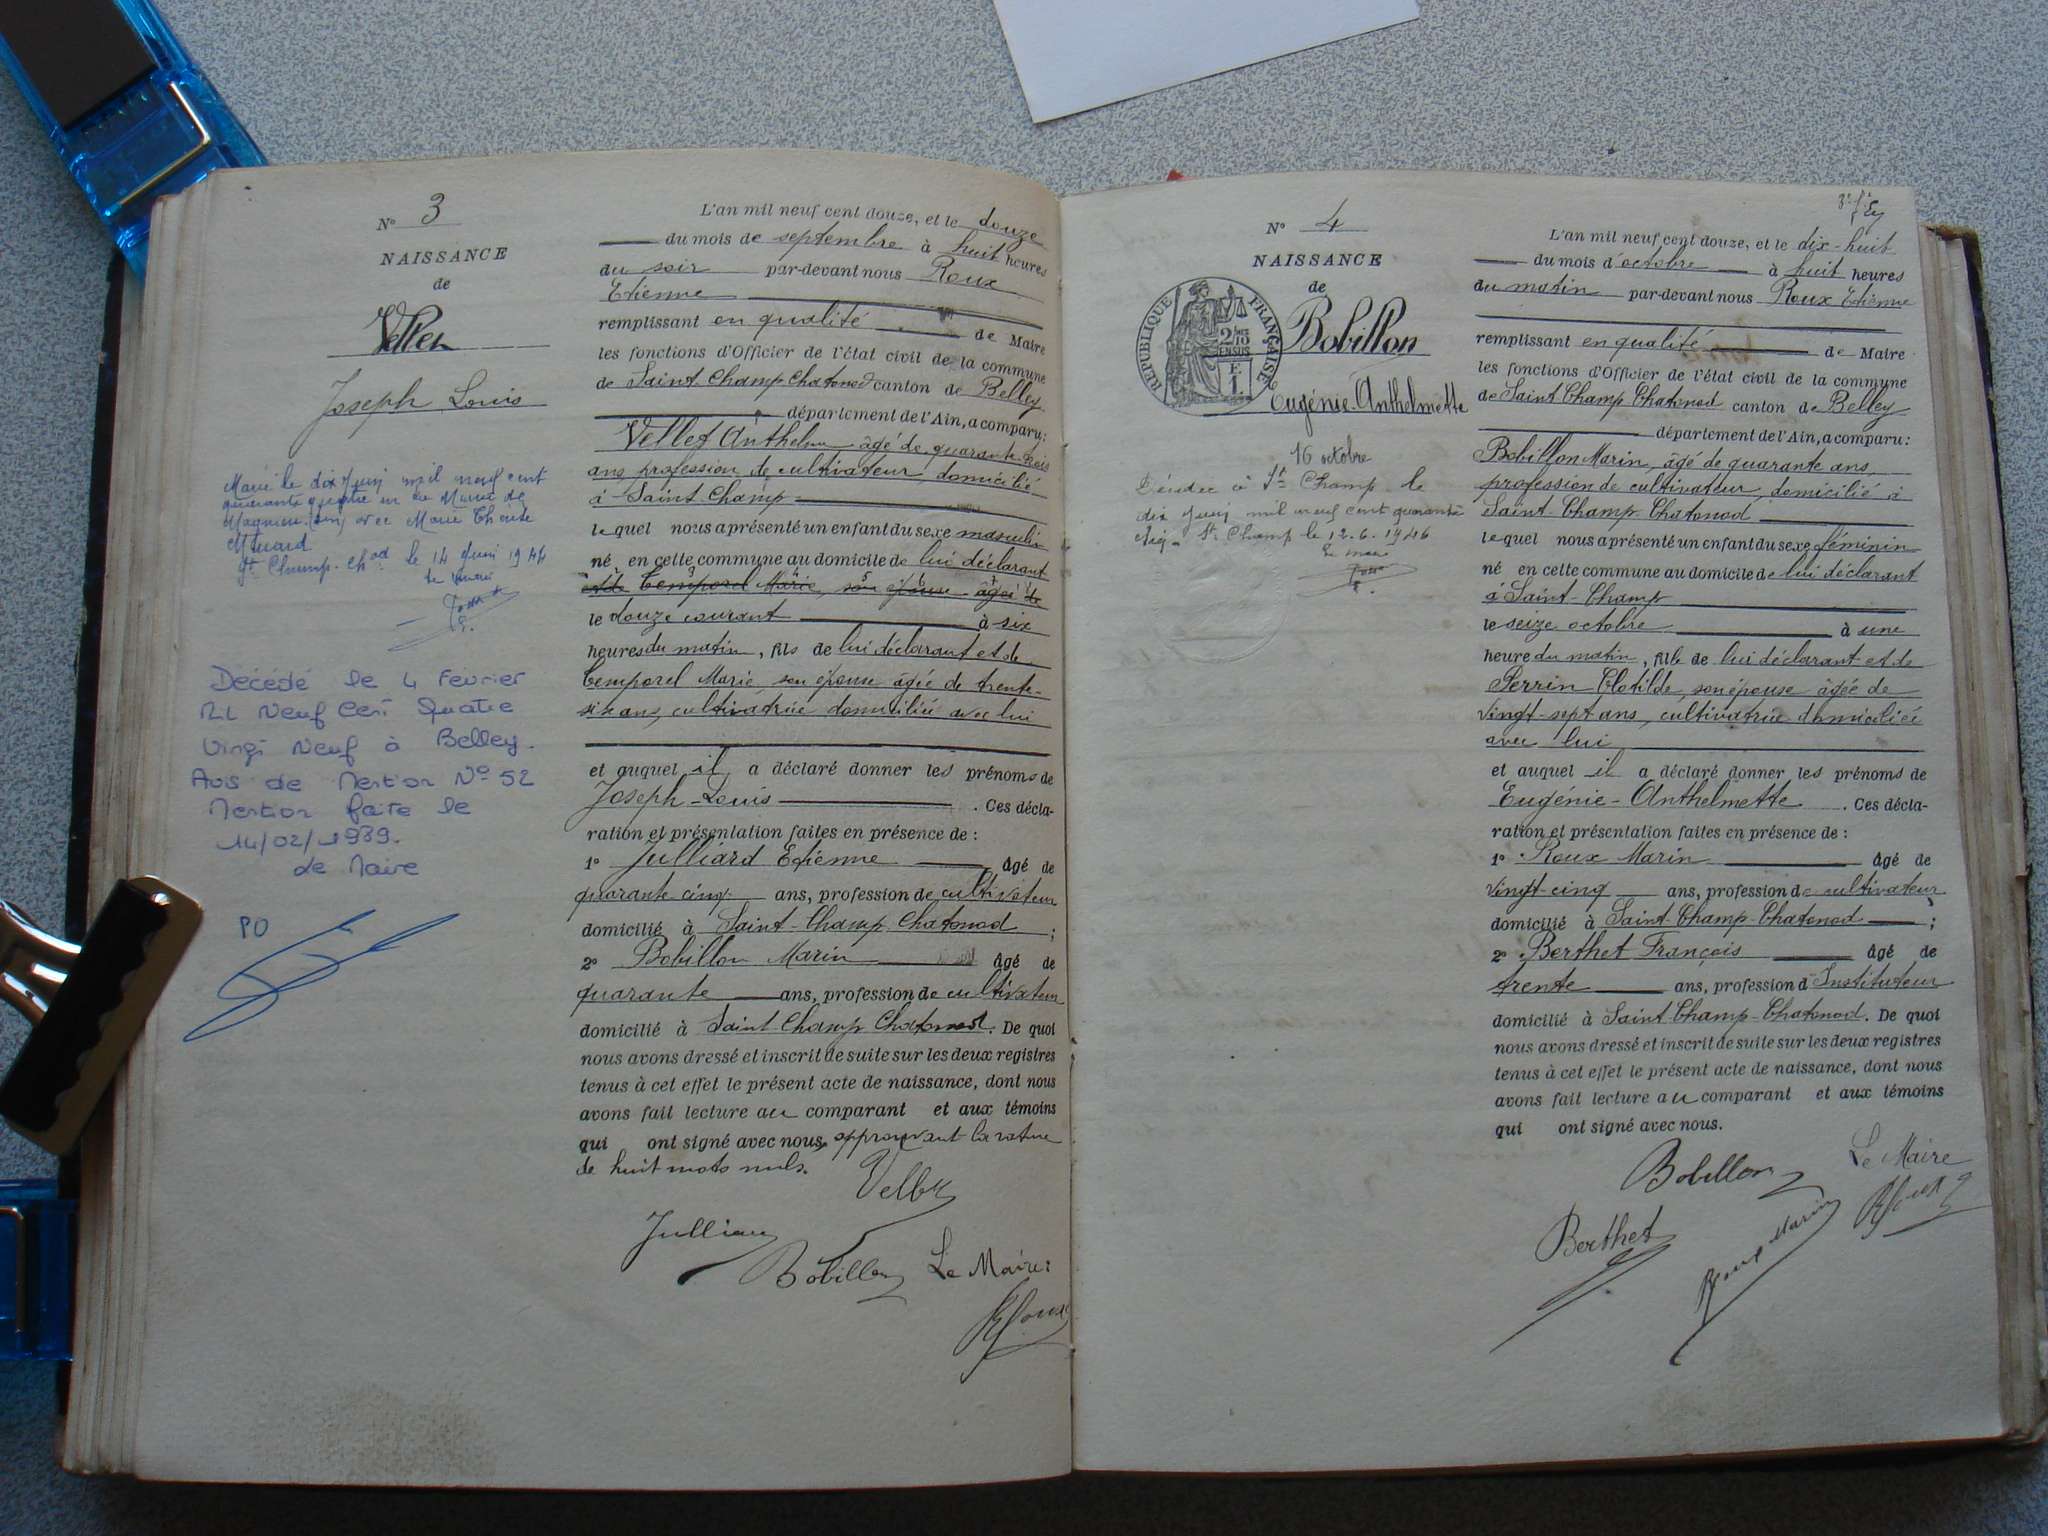 N° 3
NAISSANCE
de
Vellet
Joseph Louis
Marié le dix Juin mil neuf cent
quarante quatre en la Mairie de
Magnieu (Ain) avec Marie Thérèse
St Champ-Chod le 14 Juin 1944
Le Maire
Décédé le 4 Février
Mil Neuf Cent Quatre
Vingt Neuf à Belley.
Avis de Mention N° 52
Mention faite le
14/02/1939.
Le Maire
PO
L'an mil neuf cent douze, et le douze
du mois de septembre à huit heures
du soir par-devant nous Roux
Etienne
remplissant en qualité de Maire
les fonctions d'Officier de l'état civil de la commune
de Saint Champ Chatonod canton de Belley
département de l'Ain, a comparu:
Vellet Anthelme âgé de quarante-trois
ans, profession de cultivateur, domicilié
à Saint-Champ
lequel nous a présenté un enfant du sexe masculin
né, en cette commune au domicile de lui déclarant
et de Temporel Marie, son épouse âgée de
le douze courant à six
heures du matin, fils de lui déclarant et de
Temporel Marie son épouse âgée de trente-
six ans, cultivatrice domiciliée avec lui
et auquel il a déclaré donner les prénoms de
Joseph-Louis. Ces décla-
ration et présentation faites en présence de :
1° Julliard Etienne âgé de
quarante cinq ans, profession de cultivateur
domicilié à Saint-Champ-Chatonod ;
2° Bobillon Marin âgé de
quarante ans, profession de cultivateur
domicilié à Saint Champ Chatonod. De quoi
nous avons dressé et inscrit de suite sur les deux registres
tenus à cet effet le présent acte de naissance, dont nous
avons fait lecture au comparant et aux témoins
qui ont signé avec nous, approuvant la rature
de huit mots nuls.
Vellet
Julliard
Bobillon Le Maire:
Roux
3e f. Ey
N° 4
NAISSANCE
de
REPUBLIQUE FRANÇAISE
Bobillon
Eugénie-Anthelmette
16 octobre
Décédée à St Champ le
dix Juin mil neuf cent quarante
six. St Champ le 12.6.1946
Le maire
L'an mil neuf cent douze, et le dix-huit
du mois d'octobre à huit heures
du matin par-devant nous Roux Etienne
remplissant en qualité de Maire
les fonctions d'Officier de l'état civil de la commune
de Saint Champ Chatonod canton de Belley
département de l'Ain, a comparu:
Bobillon Marin, âgé de quarante ans,
profession de cultivateur, domicilié à
Saint-Champ-Chatonod
lequel nous a présenté un enfant du sexe féminin
né en cette commune au domicile de lui déclarant
à Saint-Champ
le seize octobre à une
heure du matin, fille de lui déclarant et de
Perrin Clotilde, son épouse âgée de
vingt-sept ans, cultivatrice domiciliée
avec lui
et auquel il a déclaré donner les prénoms de
Eugénie-Anthelmette. Ces décla-
ration et présentation faites en présence de :
1° Roux Marin âgé de
vingt-cinq ans, profession de cultivateur
domicilié à Saint-Champ-Chatonod ;
2° Berthet François âgé de
trente ans, profession d'Instituteur
domicilié à Saint Champ-Chatonod. De quoi
nous avons dressé et inscrit de suite sur les deux registres
tenus à cet effet le présent acte de naissance, dont nous
avons fait lecture au comparant et aux témoins
qui ont signé avec nous.
Bobillon Le Maire
Berthet Roux Marin Roux